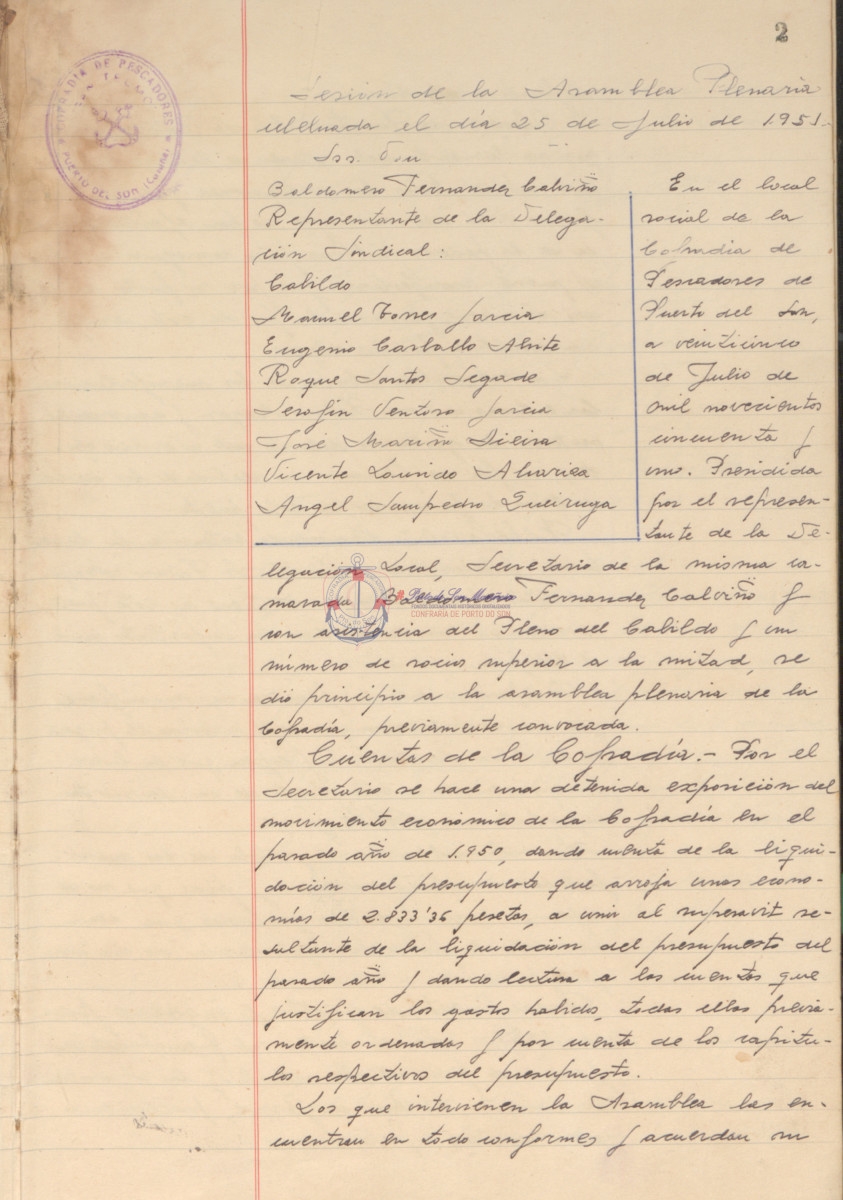 2
COFRADIA DE PESCADORES
SAN TELMO
PUERTO DEL SON (Coruña)
Sesión de la Asamblea Plenaria
celebrada el día 25 de Julio de 1.951.-
Srs. Don
Baldomero Fernandez Calviño
Representante de la Delega-
ción Sindical:
Cabildo
Manuel Torres Garcia
Eugenio Carballo Alvite
Roque Santos Segade
Serafin Ventoso Garcia
José Mariño Sieira
Vicente Lourido
Angel Sampedro Queiruga
En el local
social de la
Cofradia de
Pescadores de
Puerto del Son,
a veinticinco
de Julio de
mil novecientos
cincuenta y
uno. Presidida
por el represen-
tante de la De-
legación Local, Secretario de la misma ca-
marada Baldomero Fernandez Calviño y
con asistencia del Pleno del Cabildo y un
número de socios superior a la mitad, se
dió principio a la asamblea plenaria de la
Cofradía, previamente convocada.
CONFRARIA DE PORTO DO SON
Cuentas de la Cofradía.- Por el
Secretario se hace una detenida exposición del
movimiento económico de la Cofradía en el
pasado año de 1.950, dando cuenta de la liqui-
dación del presupuesto que arroja unas econo-
mías de 2.833'36 pesetas, a unir al superavit re-
sultante de la liquidación del presupuesto del
pasado año y dando lectura a las cuentas que
justifican los gastos habidos, todas ellas previa-
mente ordenadas y por cuenta de los capitu-
los respectivos del presupuesto.
Los que intervienen la Asamblea las en-
cuentran en todo conformes y acuerdan su